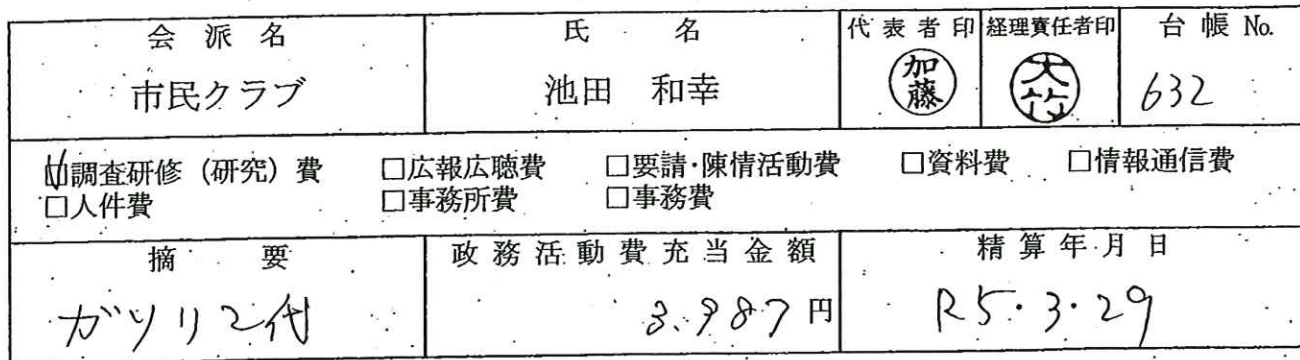 会派名 氏名 代表者印 経理責任者印 台帳 No.
市民クラブ 池田 和幸 加藤 大竹 632
☑調査研修（研究）費 □広報広聴費 □要請・陳情活動費 □資料費 □情報通信費
□人件費 □事務所費 □事務費
摘要 政務活動費充当金額 精算年月日
ガソリン代 3.987円 R5・3・29